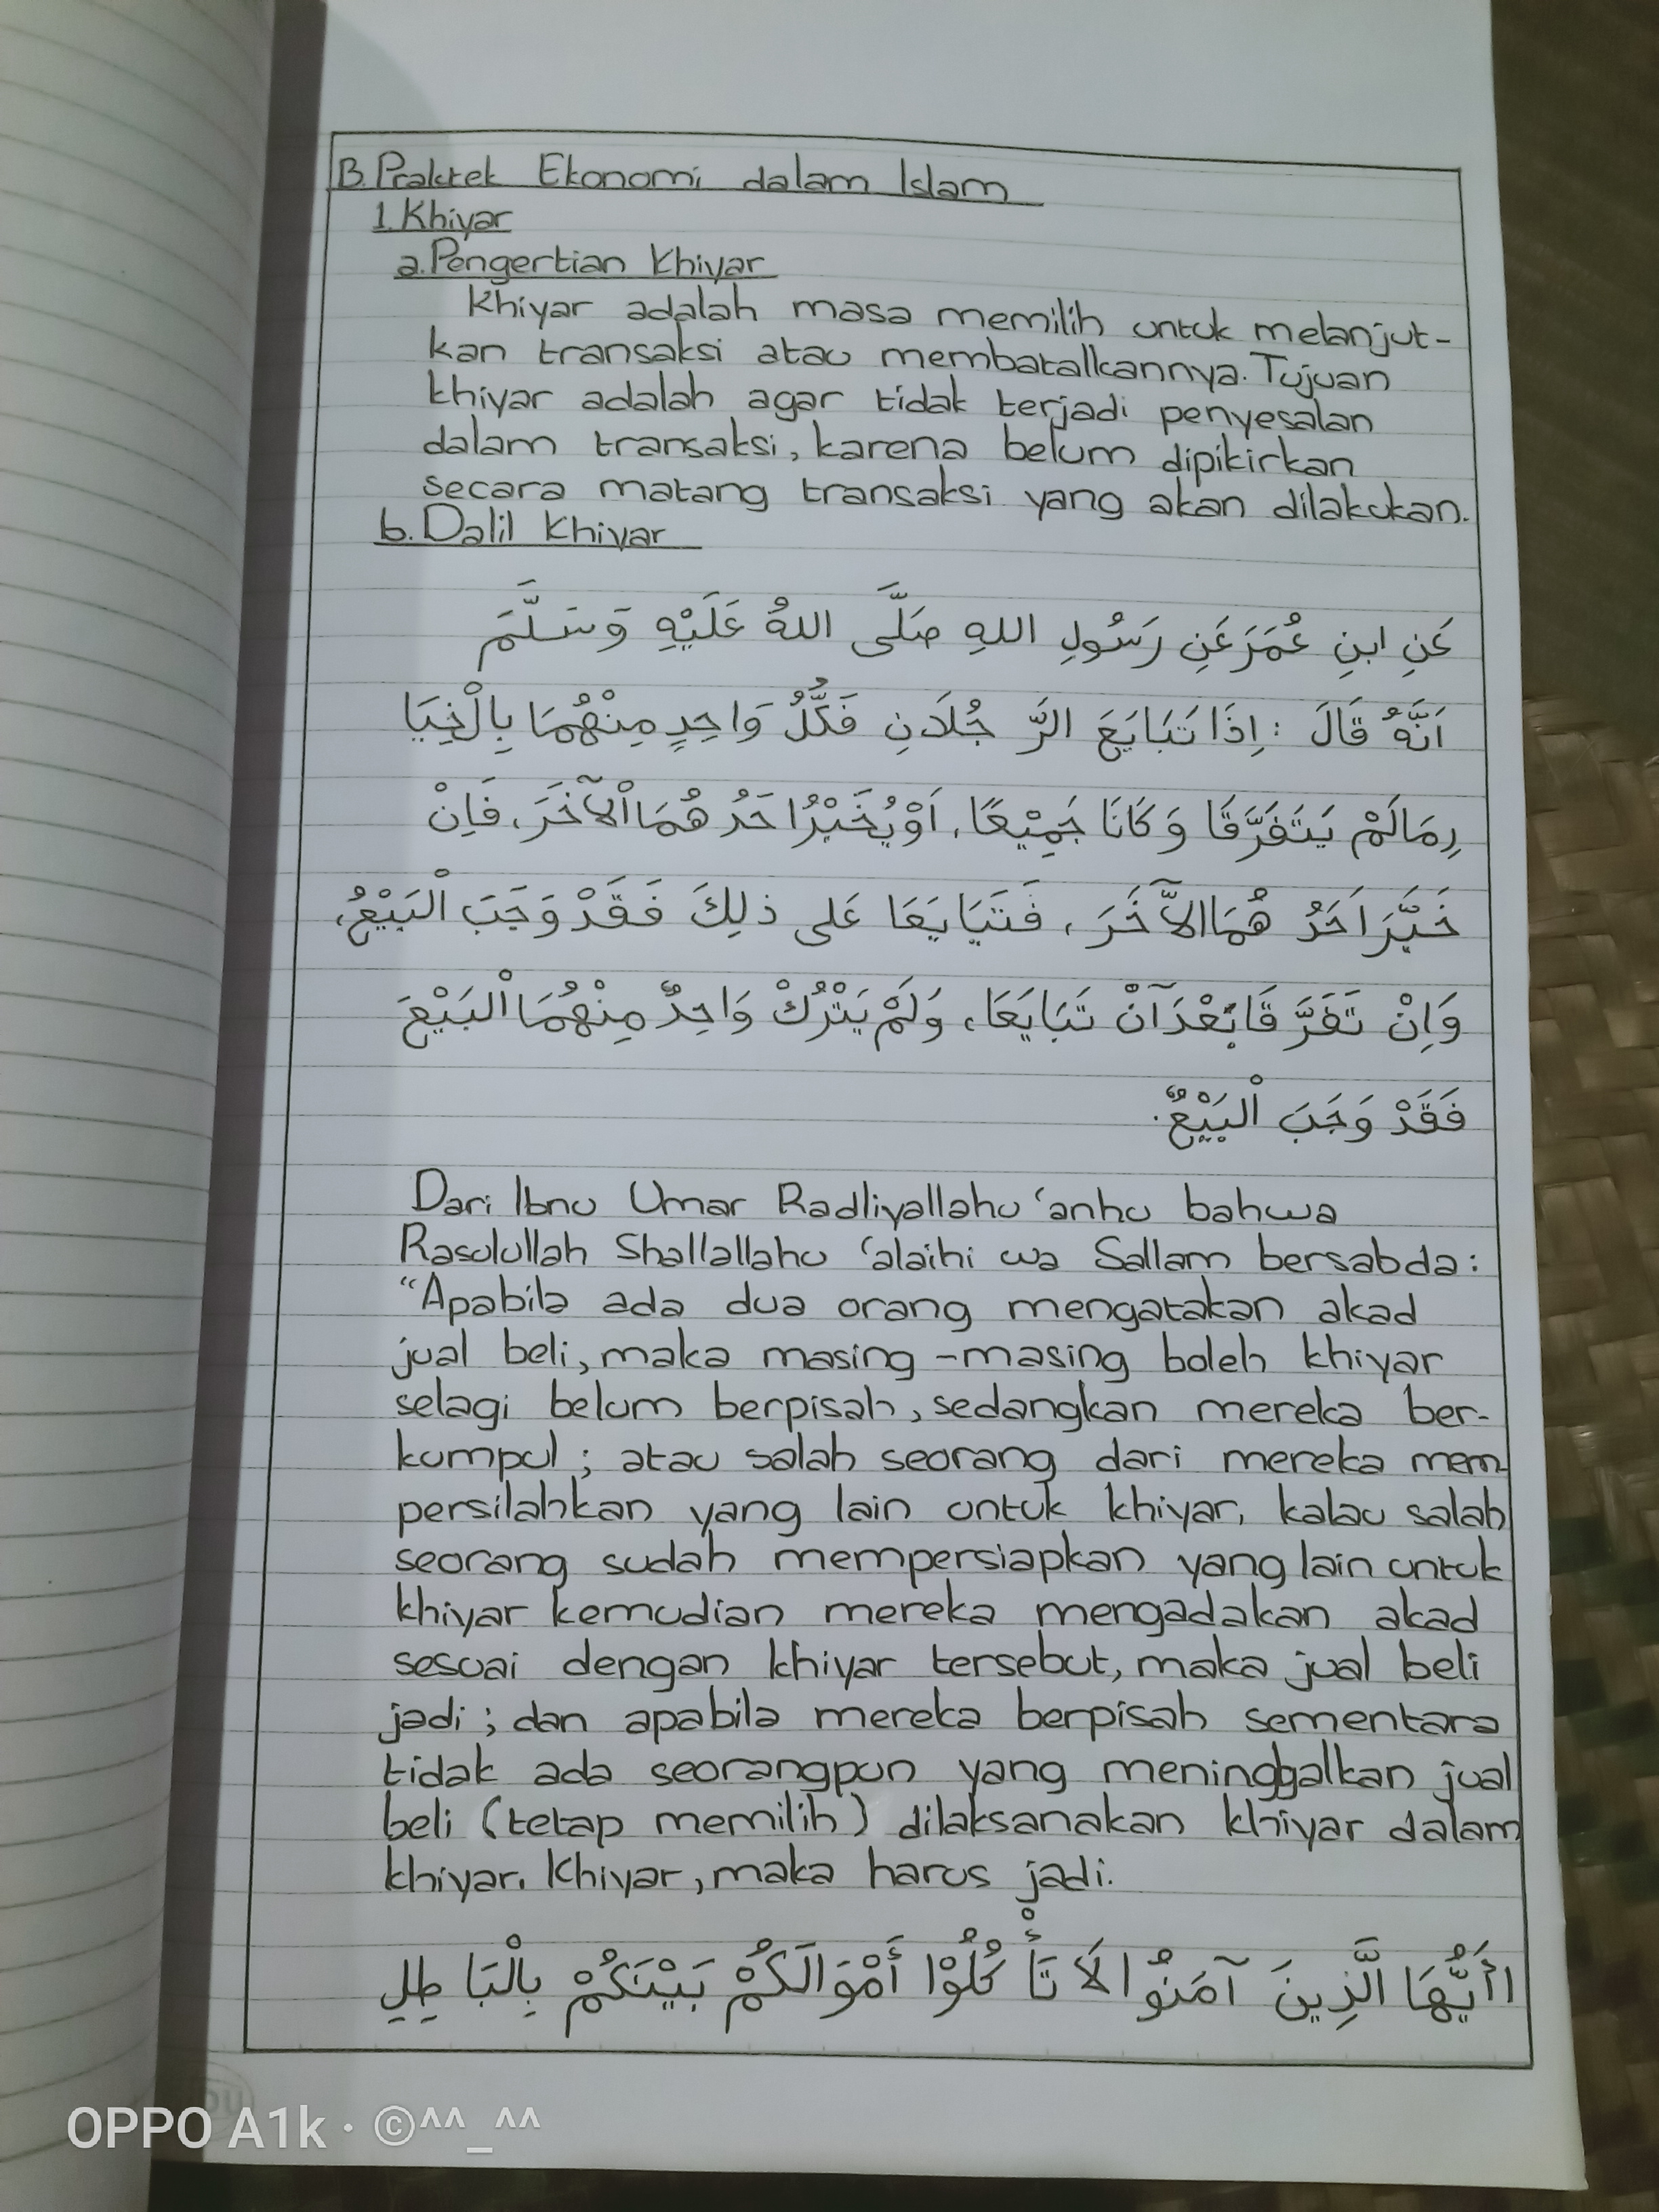 B. Praktek Ekonomi dalam Islam
1. Khiyar
a. Pengertian Khiyar
Khiyar adalah masa memilih untuk melanjut-
kan transaksi atau membatalkannya. Tujuan
khiyar adalah agar tidak terjadi penyesalan
dalam transaksi, karena belum dipikirkan
secara matang transaksi yang akan dilakukan.
b. Dalil Khiyar
عَنِ ابنِ عُمَرَ عَنِ رَسُولِ اللهِ صَلَّى اللهُ عَلَيْهِ وَسَلَّمَ
اَنَّهُ قَالَ : اِذَا تَبَايَعَ الرَّ جُلَانِ فَكُلُّ وَاحِدٍ مِنْهُمَا بِالْخِيَا
رِمَالَمْ يَتَفَرَّقَا وَكَانَا جَمِيْعًا، اَوْ يُخَيِّرُ اَحَدُ هُمَا اْلآخَرَ، فَاِنْ
خَيَّرَ اَحَدُ هُمَا الآخَرَ، فَتَبَايَعَا عَلى ذلِكَ فَقَدْ وَجَبَ الْبَيْعُ،
وَاِنْ تَفَرَّ قَا بَعْدَ آنْ تَبَايَعَا، وَلَمْ يَتْرُكْ وَاحِدٌ مِنْهُمَا الْبَيْعَ
فَقَدْ وَجَبَ الْبَيْعٌ.
Dari Ibnu Umar Radliyallahu 'anhu bahwa
Rasulullah Shallallahu 'alaihi wa Sallam bersabda:
"Apabila ada dua orang mengatakan akad
jual beli, maka masing-masing boleh khiyar
selagi belum berpisah, sedangkan mereka ber-
kumpul; atau salah seorang dari mereka mem
persilahkan yang lain untuk khiyar, kalau salah
seorang sudah mempersiapkan yang lain untuk
khiyar kemudian mereka mengadakan akad
sesuai dengan khiyar tersebut, maka jual beli
jadi; dan apabila mereka berpisah sementara
tidak ada seorangpun yang meninggalkan jual
beli (tetap memilih) dilaksanakan khiyar dalam
khiyar. Khiyar, maka harus jadi.
اأَيُّهَا الَّذِينَ آمَنُوا لَا تَأْ كُلُوْا أَمْوَالَكُمْ بَيْنَكُمْ بِالْبَا طِلِ
OPPO A1k · ©^^_^^